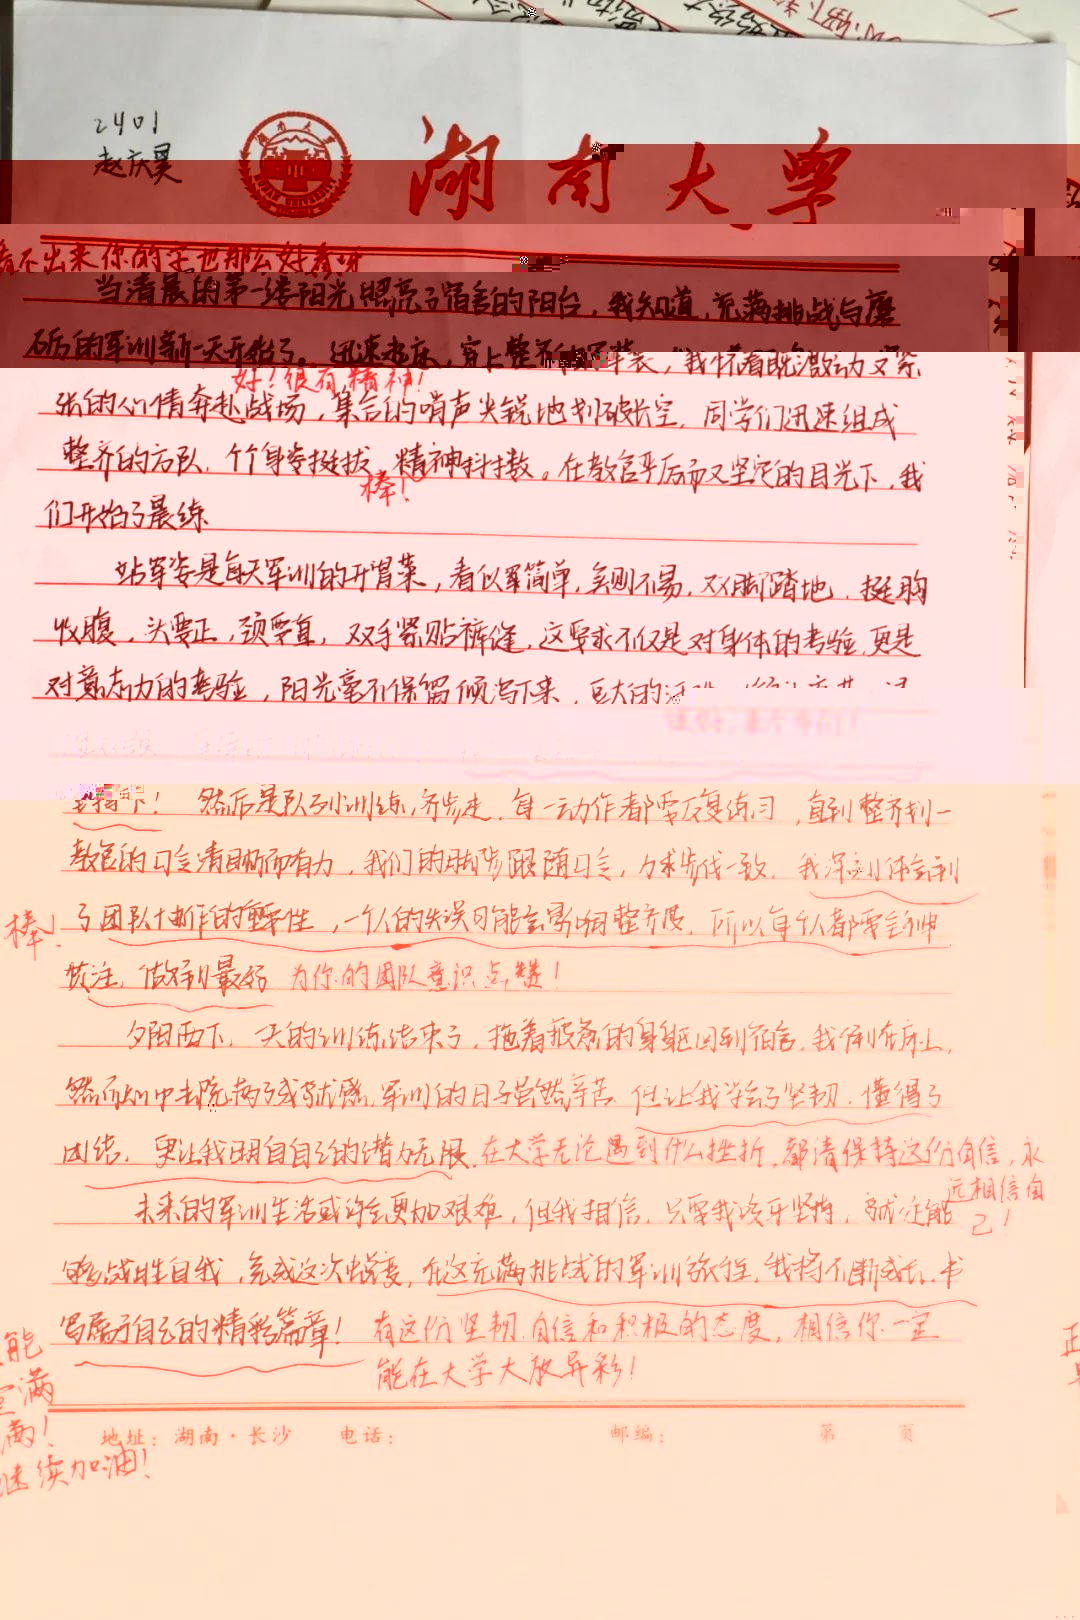 2401
赵庆昊
湖南大学
看不出来你的字也那么好看呀
当清晨的第一缕阳光照亮了宿舍的阳台，我知道，充满挑战与磨
砺的军训新一天开始了。迅速起床，穿上整齐的军装，我怀着既激动又紧
好！很有精神！
张的心情奔赴战场，集合的哨声尖锐地划破长空，同学们迅速组成
整齐的方队，个个身姿挺拔，精神抖擞。在教官严厉而又坚定的目光下，我
棒！
们开始了晨练
站军姿是每天军训的开胃菜，看似军简单，实则不易，双脚踏地，挺胸
收腹，头要正，颈要直，双手紧贴裤缝，这要求不仅是对身体的考验，更是
对意志力的考验，阳光毫不保留倾泻下来，巨大的
然而是队列训练，齐步走，每一动作都需反复练习，直到整齐划一
教官的口令清晰而有力，我们的脚步跟随口令，力求步伐一致，我深刻体会到
棒！
了团队协作的重要性，一个人的失误可能会影响整齐度，所以每个人都需全神
贯注，做到最好 为你的团队意识点赞！
夕阳西下，一天的训练结束了，拖着疲惫的身躯回到宿舍，我倒在床上，
然而心中却充满了成就感，军训的日子虽然辛苦，但让我学会了坚韧，懂得了
团结，更让我明白自己的潜力无限，在大学无论遇到什么挫折，都请保持这份自信，永
远相信自
己！
未来的军训生活或许会更加艰难，但我相信，只要我咬牙坚持，就一定能
够战胜自我，完成这次蜕变，在这充满挑战的军训旅程，我将不断成长，书
写属于自己的精彩篇章！ 有这份坚韧、自信和积极的态度，相信你一定
能在大学大放异彩！
能
满
满！
继续加油！
地址：湖南·长沙 电话： 邮编： 第 页